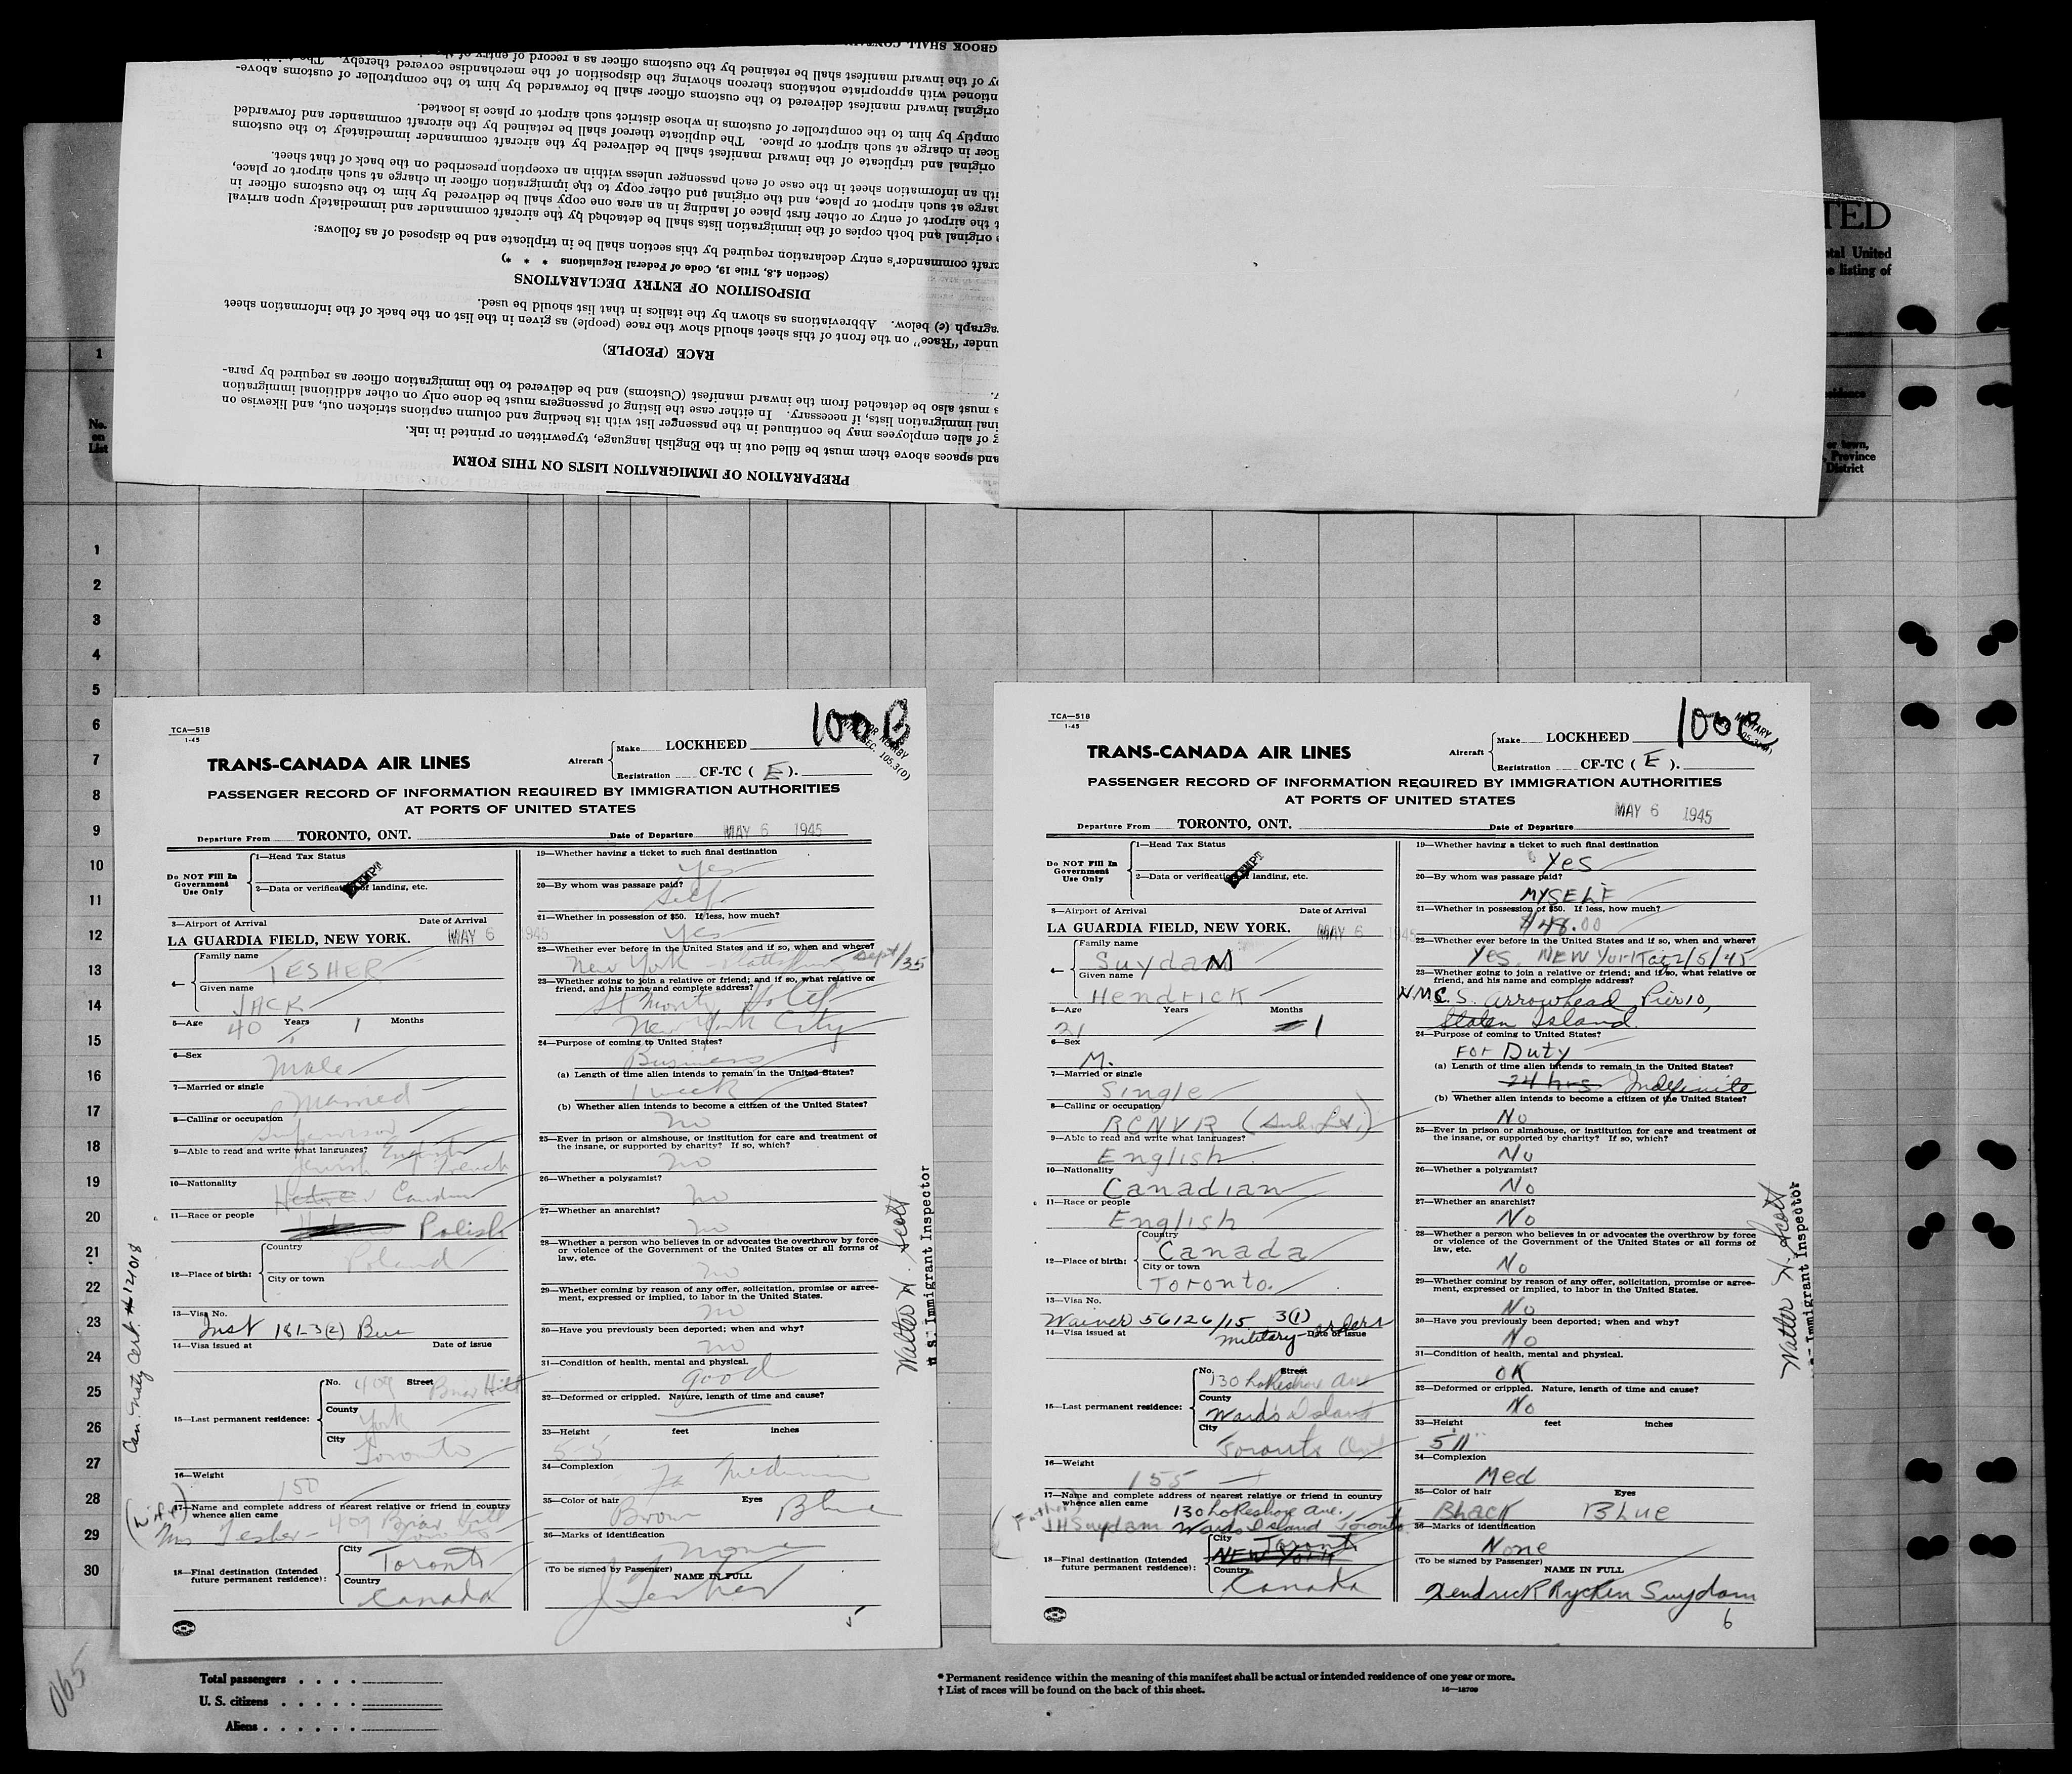 GBOOK SHALL CONTAIN
by of the inward manifest shall be retained by the customs officer as a record of entry of the
ntioned with appropriate notations thereon showing the disposition of the merchandise covered thereby.
original inward manifest delivered to the customs officer shall be forwarded by him to the comptroller of customs above-
omptly by him to the comptroller of customs in whose district such airport or place is located.
ficer in charge at such airport or place. The duplicate thereof shall be retained by the aircraft commander and forwarded
original and triplicate of the inward manifest shall be delivered by the aircraft commander immediately to the customs
ith an information sheet in the case of each passenger unless within an exception prescribed on the back of that sheet.
harge at such airport or place, and the original and other copy to the immigration officer in charge at such airport or place,
t the airport of entry or other first place of landing in an area one copy shall be delivered by him to the customs officer in
e original and both copies of the immigration lists shall be detached by the aircraft commander and immediately upon arrival
craft commander's entry declaration required by this section shall be in triplicate and be disposed of as follows:
(Section 4.8, Title 19, Code of Federal Regulations * * *)
DISPOSITION OF ENTRY DECLARATIONS
ragraph (e) below. Abbreviations as shown by the italics in that list should be used.
under "Race" on the front of this sheet should show the race (people) as given in the list on the back of the information sheet
RACE (PEOPLE)
y.
s must also be detached from the inward manifest (Customs) and be delivered to the immigration officer as required by para-
inal immigration lists, if necessary. In either case the listing of passengers must be done only on other additional immigration
g of alien employees may be continued in the passenger list with its heading and column captions stricken out, and likewise on
and spaces above them must be filled out in the English language, typewritten or printed in ink.
PREPARATION OF IMMIGRATION LISTS ON THIS FORM
TED
ntal United
e listing of
idence
or town,
Province
District
1
No.
on
List
1
2
3
4
5
6
7
8
9
10
11
12
13
14
15
16
17
18
19
20
21
22
23
24
25
26
27
28
29
30
TCA—518
1-45
100 B
SEC. 105.3(D)
TRANS-CANADA AIR LINES
Aircraft
Make LOCKHEED
Registration CF-TC ( E ).
PASSENGER RECORD OF INFORMATION REQUIRED BY IMMIGRATION AUTHORITIES
AT PORTS OF UNITED STATES
Departure From TORONTO, ONT. Date of Departure MAY 6 1945
Do NOT Fill In
Government
Use Only
1—Head Tax Status
EXEMPT
2—Data or verification of landing, etc.
3—Airport of Arrival Date of Arrival
LA GUARDIA FIELD, NEW YORK. MAY 6 1945
4— Family name TESHER
Given name JACK
5—Age 40 Years 1 Months
6—Sex Male
7—Married or single Married
8—Calling or occupation
9—Able to read and write what languages? English
Jewish French
10—Nationality Canadian
11—Race or people Polish
12—Place of birth: Country Poland
City or town
13—Visa No.
Inst 181-3(2) Bus
14—Visa issued at Date of issue
15—Last permanent residence: No. 409 Street Briar Hill
County York
City Toronto
16—Weight 150
17—Name and complete address of nearest relative or friend in country
whence alien came
(Wife) Mrs Tesher - 409 Briar Hill
Toronto
18—Final destination (Intended
future permanent residence): City Toronto
Country Canada
Can. Naty Cert. # 12408
19—Whether having a ticket to such final destination
Yes
20—By whom was passage paid?
Self
21—Whether in possession of $50. If less, how much?
Yes
22—Whether ever before in the United States and if so, when and where?
New York - Plattsburg Sept/35
23—Whether going to join a relative or friend; and if so, what relative or
friend, and his name and complete address?
St Moritz Hotel
New York City
24—Purpose of coming to United States?
Business
(a) Length of time alien intends to remain in the United States?
1 week
(b) Whether alien intends to become a citizen of the United States?
no
25—Ever in prison or almshouse, or institution for care and treatment of
the insane, or supported by charity? If so, which?
no
26—Whether a polygamist?
no
27—Whether an anarchist?
no
28—Whether a person who believes in or advocates the overthrow by force
or violence of the Government of the United States or all forms of
law, etc.
no
29—Whether coming by reason of any offer, solicitation, promise or agree-
ment, expressed or implied, to labor in the United States.
no
30—Have you previously been deported; when and why?
no
31—Condition of health, mental and physical.
good
32—Deformed or crippled. Nature, length of time and cause?
33—Height feet inches
5-5
34—Complexion
Medium
35—Color of hair Eyes
Brown Blue
36—Marks of identification
none
(To be signed by Passenger) NAME IN FULL
J Tesher
5
Walter H. Scott
Immigrant Inspector
TCA—518
1-45
100 C
MILITARY
TRANS-CANADA AIR LINES
Aircraft
Make LOCKHEED
Registration CF-TC ( E ).
PASSENGER RECORD OF INFORMATION REQUIRED BY IMMIGRATION AUTHORITIES
AT PORTS OF UNITED STATES
Departure From TORONTO, ONT. Date of Departure MAY 6 1945
Do NOT Fill In
Government
Use Only
1—Head Tax Status
EXEMPT
2—Data or verification of landing, etc.
3—Airport of Arrival Date of Arrival
LA GUARDIA FIELD, NEW YORK. MAY 6 1945
4— Family name Suydam
Given name Hendrick
5—Age 21 Years 1 Months
6—Sex M.
7—Married or single Single
8—Calling or occupation RCNVR (Sub. Lt.)
9—Able to read and write what languages?
English
10—Nationality Canadian
11—Race or people English
12—Place of birth: Country Canada
City or town Toronto.
13—Visa No.
Waiver 56126/15 3(1)
14—Visa issued at military orders Date of issue
15—Last permanent residence: No. Street 130 Lakeshore Ave
County Wards Island
City Toronto Ont
16—Weight 155
17—Name and complete address of nearest relative or friend in country
whence alien came 130 Lakeshore Ave.
(Father) JH Suydam Wards Island Toronto
18—Final destination (Intended
future permanent residence): City NEW YORK Toronto
Country Canada
19—Whether having a ticket to such final destination
Yes
20—By whom was passage paid?
MYSELF
21—Whether in possession of $50. If less, how much?
$48.00
22—Whether ever before in the United States and if so, when and where?
Yes. NEW York 2/5/45
23—Whether going to join a relative or friend; and if so, what relative or
friend, and his name and complete address?
H.M.C.S. Arrowhead, Pier 10,
Staten Island.
24—Purpose of coming to United States?
For Duty
(a) Length of time alien intends to remain in the United States?
24 hrs Indefinite
(b) Whether alien intends to become a citizen of the United States?
No
25—Ever in prison or almshouse, or institution for care and treatment of
the insane, or supported by charity? If so, which?
No
26—Whether a polygamist?
No
27—Whether an anarchist?
No
28—Whether a person who believes in or advocates the overthrow by force
or violence of the Government of the United States or all forms of
law, etc.
No
29—Whether coming by reason of any offer, solicitation, promise or agree-
ment, expressed or implied, to labor in the United States.
No
30—Have you previously been deported; when and why?
No
31—Condition of health, mental and physical.
OK
32—Deformed or crippled. Nature, length of time and cause?
No
33—Height feet inches
5'11"
34—Complexion
Med
35—Color of hair Eyes
Black BLUE
36—Marks of identification
None
(To be signed by Passenger) NAME IN FULL
Hendrick Rycken Suydam
6
Walter H. Scott
Immigrant Inspector
065
Total passengers . . . .
U. S. citizens . . . . .
Aliens . . . . . .
* Permanent residence within the meaning of this manifest shall be actual or intended residence of one year or more.
† List of races will be found on the back of this sheet.
16—18709